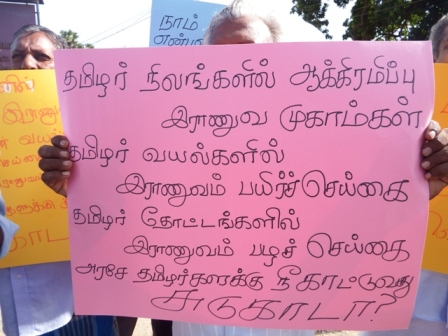 நாம்
தமிழர் நிலங்களில் ஆக்கிரமிப்பு
இராணுவ முகாம்கள்
தமிழர் வயல்களில்
இராணுவம் பயிர்ச்செய்கை
தமிழர் தோட்டங்களில்
இராணுவம் பழச் செய்கை
அரசே தமிழர்களுக்கு நீ காட்டுவது
சுடுகாடா?